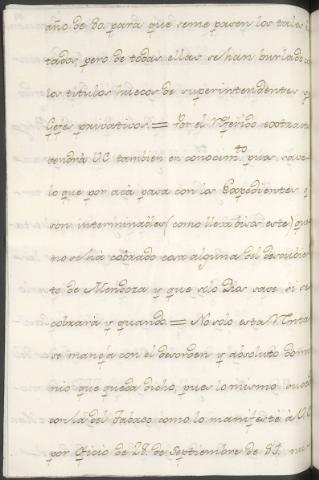 año de 80. para que seme pasen los tales
tados pero de todas ellas se han burlado con
los titulos huecos de superintendentes y
Gefes privativos. = Por el Referido extracto
tendrá V.E. tambien en conocim.to para saver
lo que por acá pasa con los Expedientes q
son interminables (como lleva visos este) que
no se há cobrado cosa alguna del descubier
to de Mendoza y que sólo Dios save si se
cobrará y quando = No solo esta Renta
se maneja con el desorden y absoluto domi
nio que queda dicho, pues lo mismo sucede
con la del Tabaco como lo manifesté á V.E.
por Oficio de 28. de Septiembre de 85.